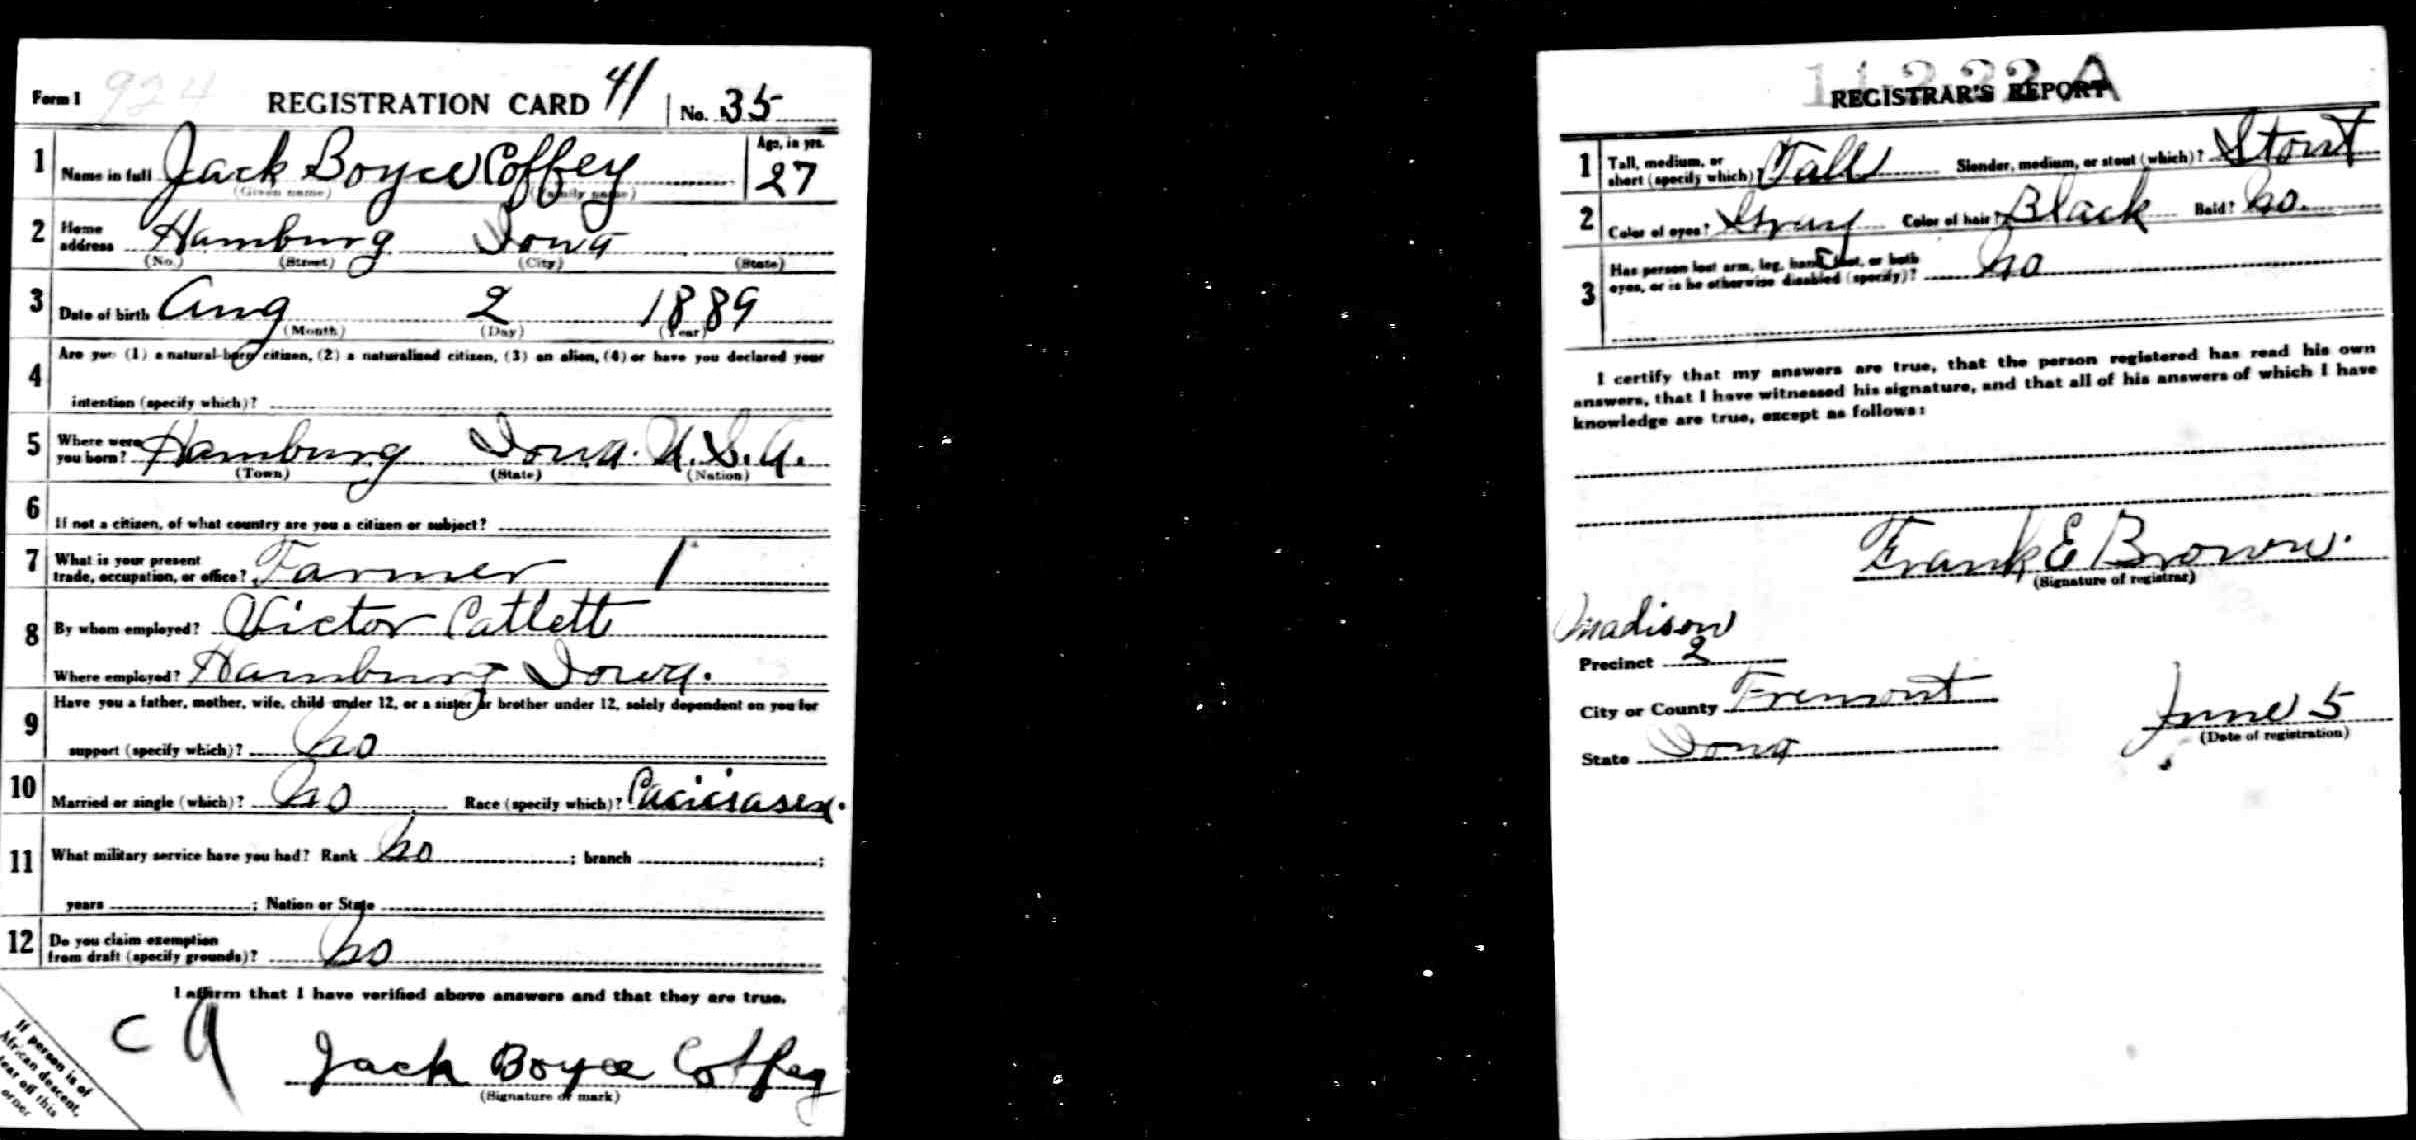 Form 1 924 REGISTRATION CARD 41 No. 35
1 Name in full Jack Boyce Coffey Age, in yrs. 27
(Given name) (Family name)
2 Home address Hamburg Iowa
(No.) (Street) (City) (State)
3 Date of birth Aug 2 1889
(Month) (Day) (Year)
4 Are you (1) a natural-born citizen, (2) a naturalized citizen, (3) an alien, (4) or have you declared your
intention (specify which)?
5 Where were you born? Hamburg Iowa. U.S.A.
(Town) (State) (Nation)
6 If not a citizen, of what country are you a citizen or subject?
7 What is your present trade, occupation, or office? Farmer 1
8 By whom employed? Victor Catlett
Where employed? Hamburg Iowa.
9 Have you a father, mother, wife, child under 12, or a sister or brother under 12, solely dependent on you for
support (specify which)? No
10 Married or single (which)? No Race (specify which)?
11 What military service have you had? Rank No ; branch ;
years ; Nation or State
12 Do you claim exemption from draft (specify grounds)? No
I affirm that I have verified above answers and that they are true.
C 9
Jack Boyce Coffey
(Signature or mark)
If person is of
African descent,
tear off this
corner
11 2 22 A
REGISTRAR'S REPORT
1 Tall, medium, or short (specify which)? Tall Slender, medium, or stout (which)? Stout
2 Color of eyes? Gray Color of hair? Black Bald? No.
3 Has person lost arm, leg, hand, foot, or both
eyes, or is he otherwise disabled (specify)? No
I certify that my answers are true, that the person registered has read his own
answers, that I have witnessed his signature, and that all of his answers of which I have
knowledge are true, except as follows:
Frank E Brown.
(Signature of registrar)
Madison
Precinct 2
City or County Fremont
State Iowa
June 5
(Date of registration)